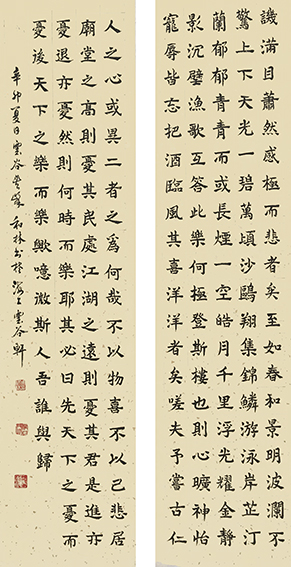 譏滿目蕭然感極而悲者矣至如春和景明波瀾不
驚上下天光一碧萬頃沙鷗翔集錦鱗游泳岸芷汀
蘭郁郁青青而或長煙一空皓月千里浮光耀金靜
影沉璧漁歌互答此樂何極登斯樓也則心曠神怡
寵辱皆忘把酒臨風其喜洋洋者矣嗟夫予嘗古仁
人之心或異二者之爲何哉不以物喜不以己悲居
廟堂之高則憂其民處江湖之遠則憂其君是進亦
憂退亦憂然則何時而樂耶其必曰先天下之憂而
憂後天下之樂而樂歟噫微斯人吾誰與歸
辛卯夏日雲谷和林書於上雲谷軒